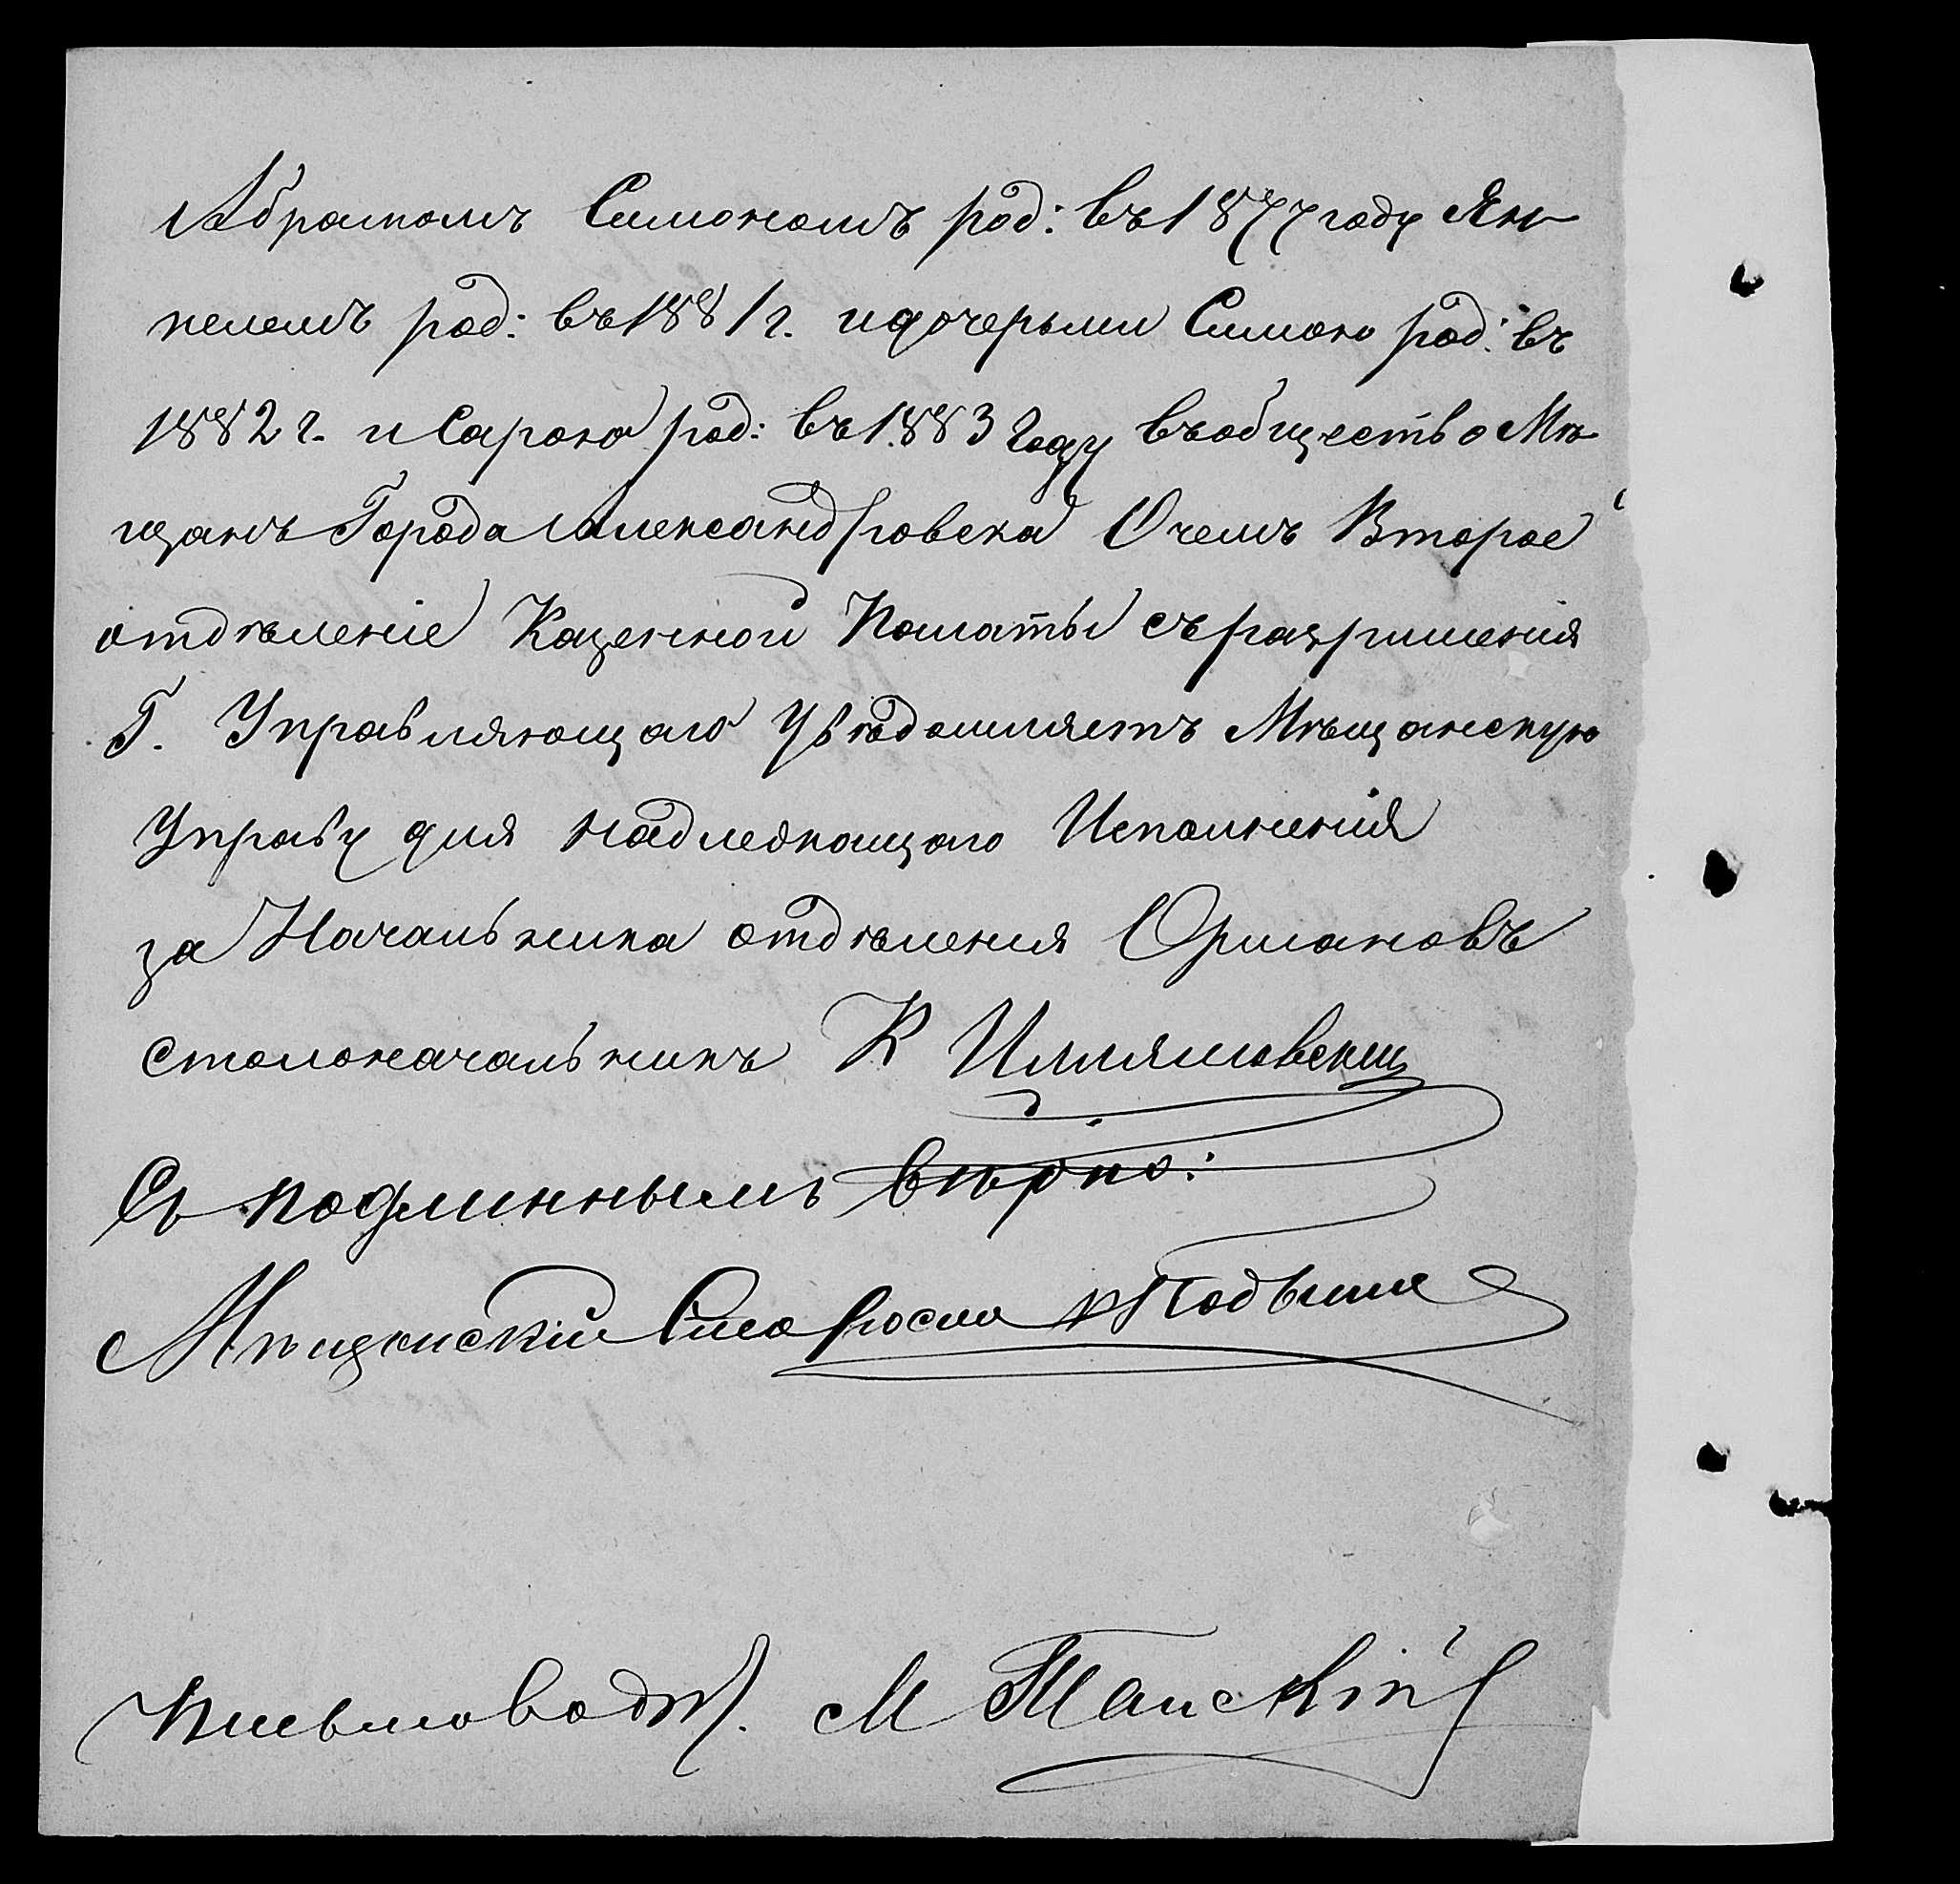 Абрамомъ Симономъ род: въ 1877 году Ян-
келемъ род: въ 1881 г. и дочерьми Симою род: въ
1882 г. и Сарою род: въ 1883 году въ общество Мѣ-
щанъ Города Александровска О чемъ Второе
отдѣленіе Казенной Палаты съ разришенія
Г. Управляющаго Увѣдомляетъ Мѣщанскую
Управу для надлежащаго Исполненія
за Начальника отдѣленія Оршановъ
столоначальникъ К
Съ подлиннымъ вѣрно:
Мѣщанскій Староста
Письмовод. М